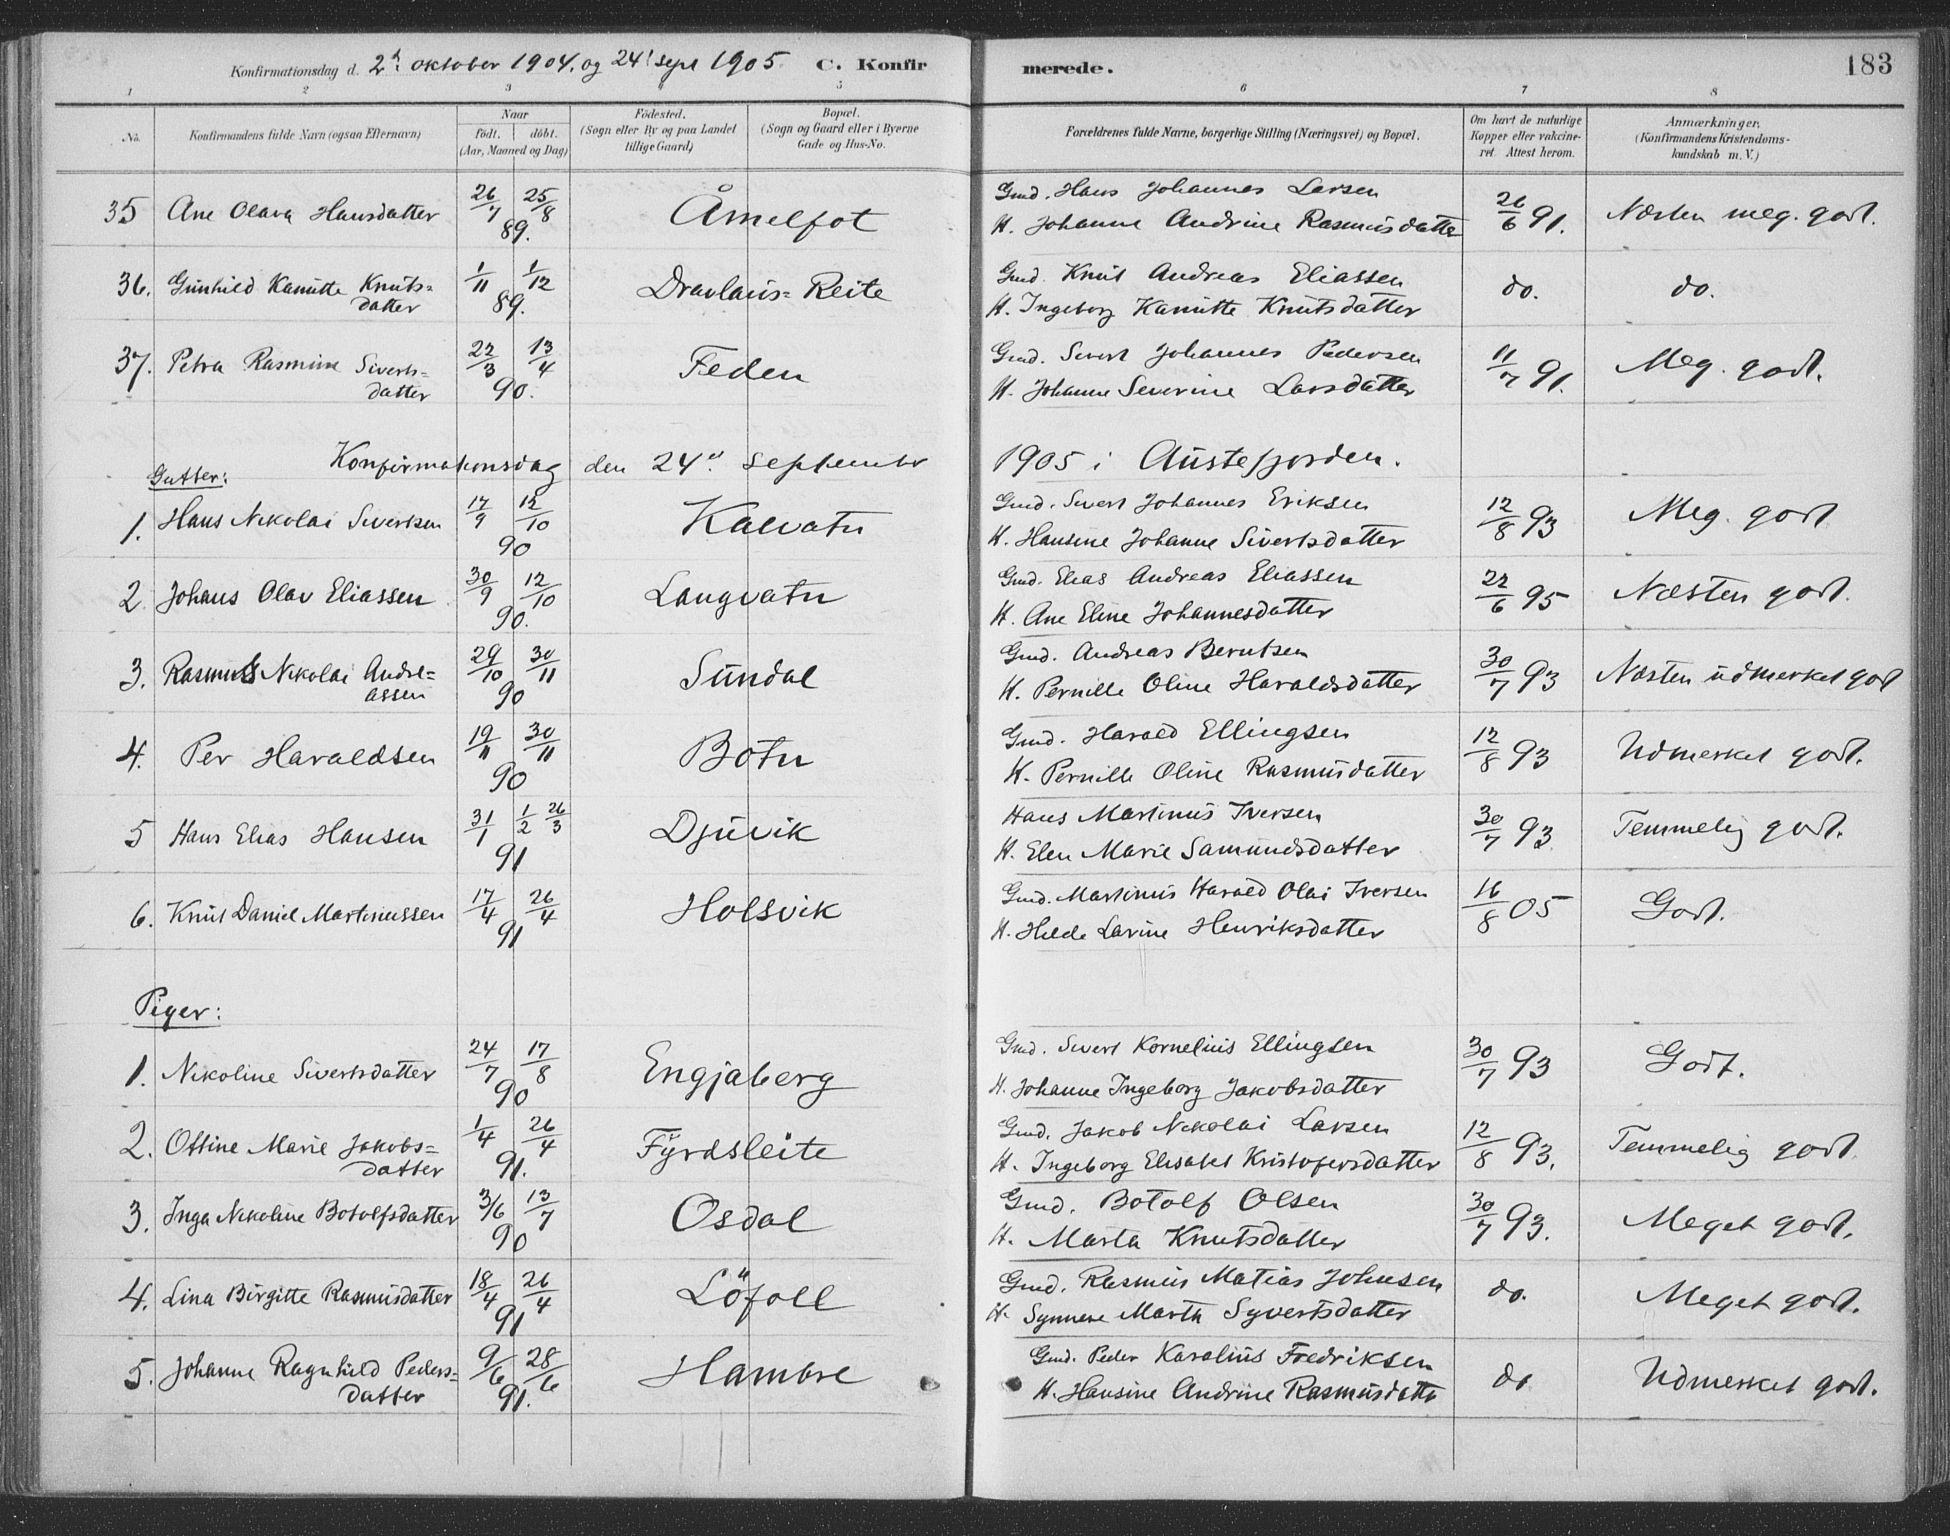 Konfirmationsdag d. 2' oktober 1904, og 24' sept 1905. C. Konfirmerede. 183
1 2 3 5 6 7 8
No. Konfirmandens fulde Navn (ogsaa Efternavn) Naar födt. döbt. (Aar, Maaned og Dag) Födested. (Sogn eller By og paa Landet tillige Gaard) Bopæl. (Sogn og Gaard eller i Byerne Gade og Hus-No. Forældrenes fulde Navne, borgerlige Stilling (Næringsvei) og Bopæl. Om havt de naturlige Kopper eller vakcineret. Attest herom. Anmærkninger. (Konfirmandens Kristendomskundskab m. V.)
35 Ane Olava Hansdatter 26/7 25/8 89. Åmelfot Gmd. Hans Johannes Larsen
H. Johanne Andrine Rasmusdatter 26/6 91. Næsten meg. godt.
36. Gunhild Kanutte Knuts=
datter 1/11 1/12 89. Dravlaus=Reite Gmd. Knut Andreas Eliassen
H. Ingeborg Kanutte Knutsdatter do. do.
37. Petra Rasmine Siverts=
datter 22/3 13/4 90. Feden Gmd. Sivert Johannes Pedersen
H. Johanne Severine Larsdatter 11/7 91. Meg. godt.
Konfirmationsdag den 24'' september 1905 i Austefjorden.
Gutter:
1. Hans Nikolai Sivertsen 17/9 12/10 90 Kalvatn Gmd. Sivert Johannes Eriksen
H. Hansine Johanne Sivertsdatter 12/8 93 Meg. godt
2. Johans Olav Eliassen 30/9 12/10 90. Langvatn Gmd. Elias Andreas Eliassen
H. Ane Eline Johannesdatter 22/6 95 Næsten godt.
3. Rasmus Nikolai Andre=
assen 29/10 30/11 90 Sundal Gmd. Andreas Berntsen
H. Pernille Oline Haraldsdatter 30/7 93 Næsten udmerket god
4. Per Haraldsen 19/11 30/11 90 Botn Gmd. Harald Ellingsen
H. Pernille Oline Rasmusdatter 12/8 93 Udmerket godt.
5 Hans Elias Hansen 31/1 1/2 26/3 91 Djuvik Hans Martinus Iversen
H. Elen Marie Samundsdatter 30/7 93 Temmelig godt.
6. Knut Daniel Martinussen 17/4 26/4 91 Holsvik Gmd. Martinus Harald Olai Iversen
H. Hilde Lavine Henriksdatter 16/8 05 Godt.
Piger:
1. Nikoline Sivertsdatter 24/7 17/8 90 Engjaberg Gmd. Sivert Kornelius Ellingsen
H. Johanne Ingeborg Jakobsdatter 30/7 93 Godt.
2. Ottine Marie Jakobs=
datter 1/4 26/4 91. Fyrdsleite Gmd. Jakob Nikolai Larsen
H. Ingeborg Elisabet Kristofersdatter 12/8 93. Temmelig godt
3. Inga Nikoline Botolfsdatter 3/6 13/7 90 Osdal Gmd. Botolf Olsen
H. Marta Knutsdatter 30/7 93. Meget godt.
4. Lina Birgitte Rasmusdatter 18/4 26/4 91 Löfoll Gmd. Rasmus Matias Johnsen
H. Synneve Marta Syvertsdatter do. Meget godt.
5. Johanne Ragnhild Peders=
datter 9/6 28/6 91. Hambre Gmd. Peder Karolius Fredriksen
H. Hansine Andrine Rasmusdatte do Udmerket godt.